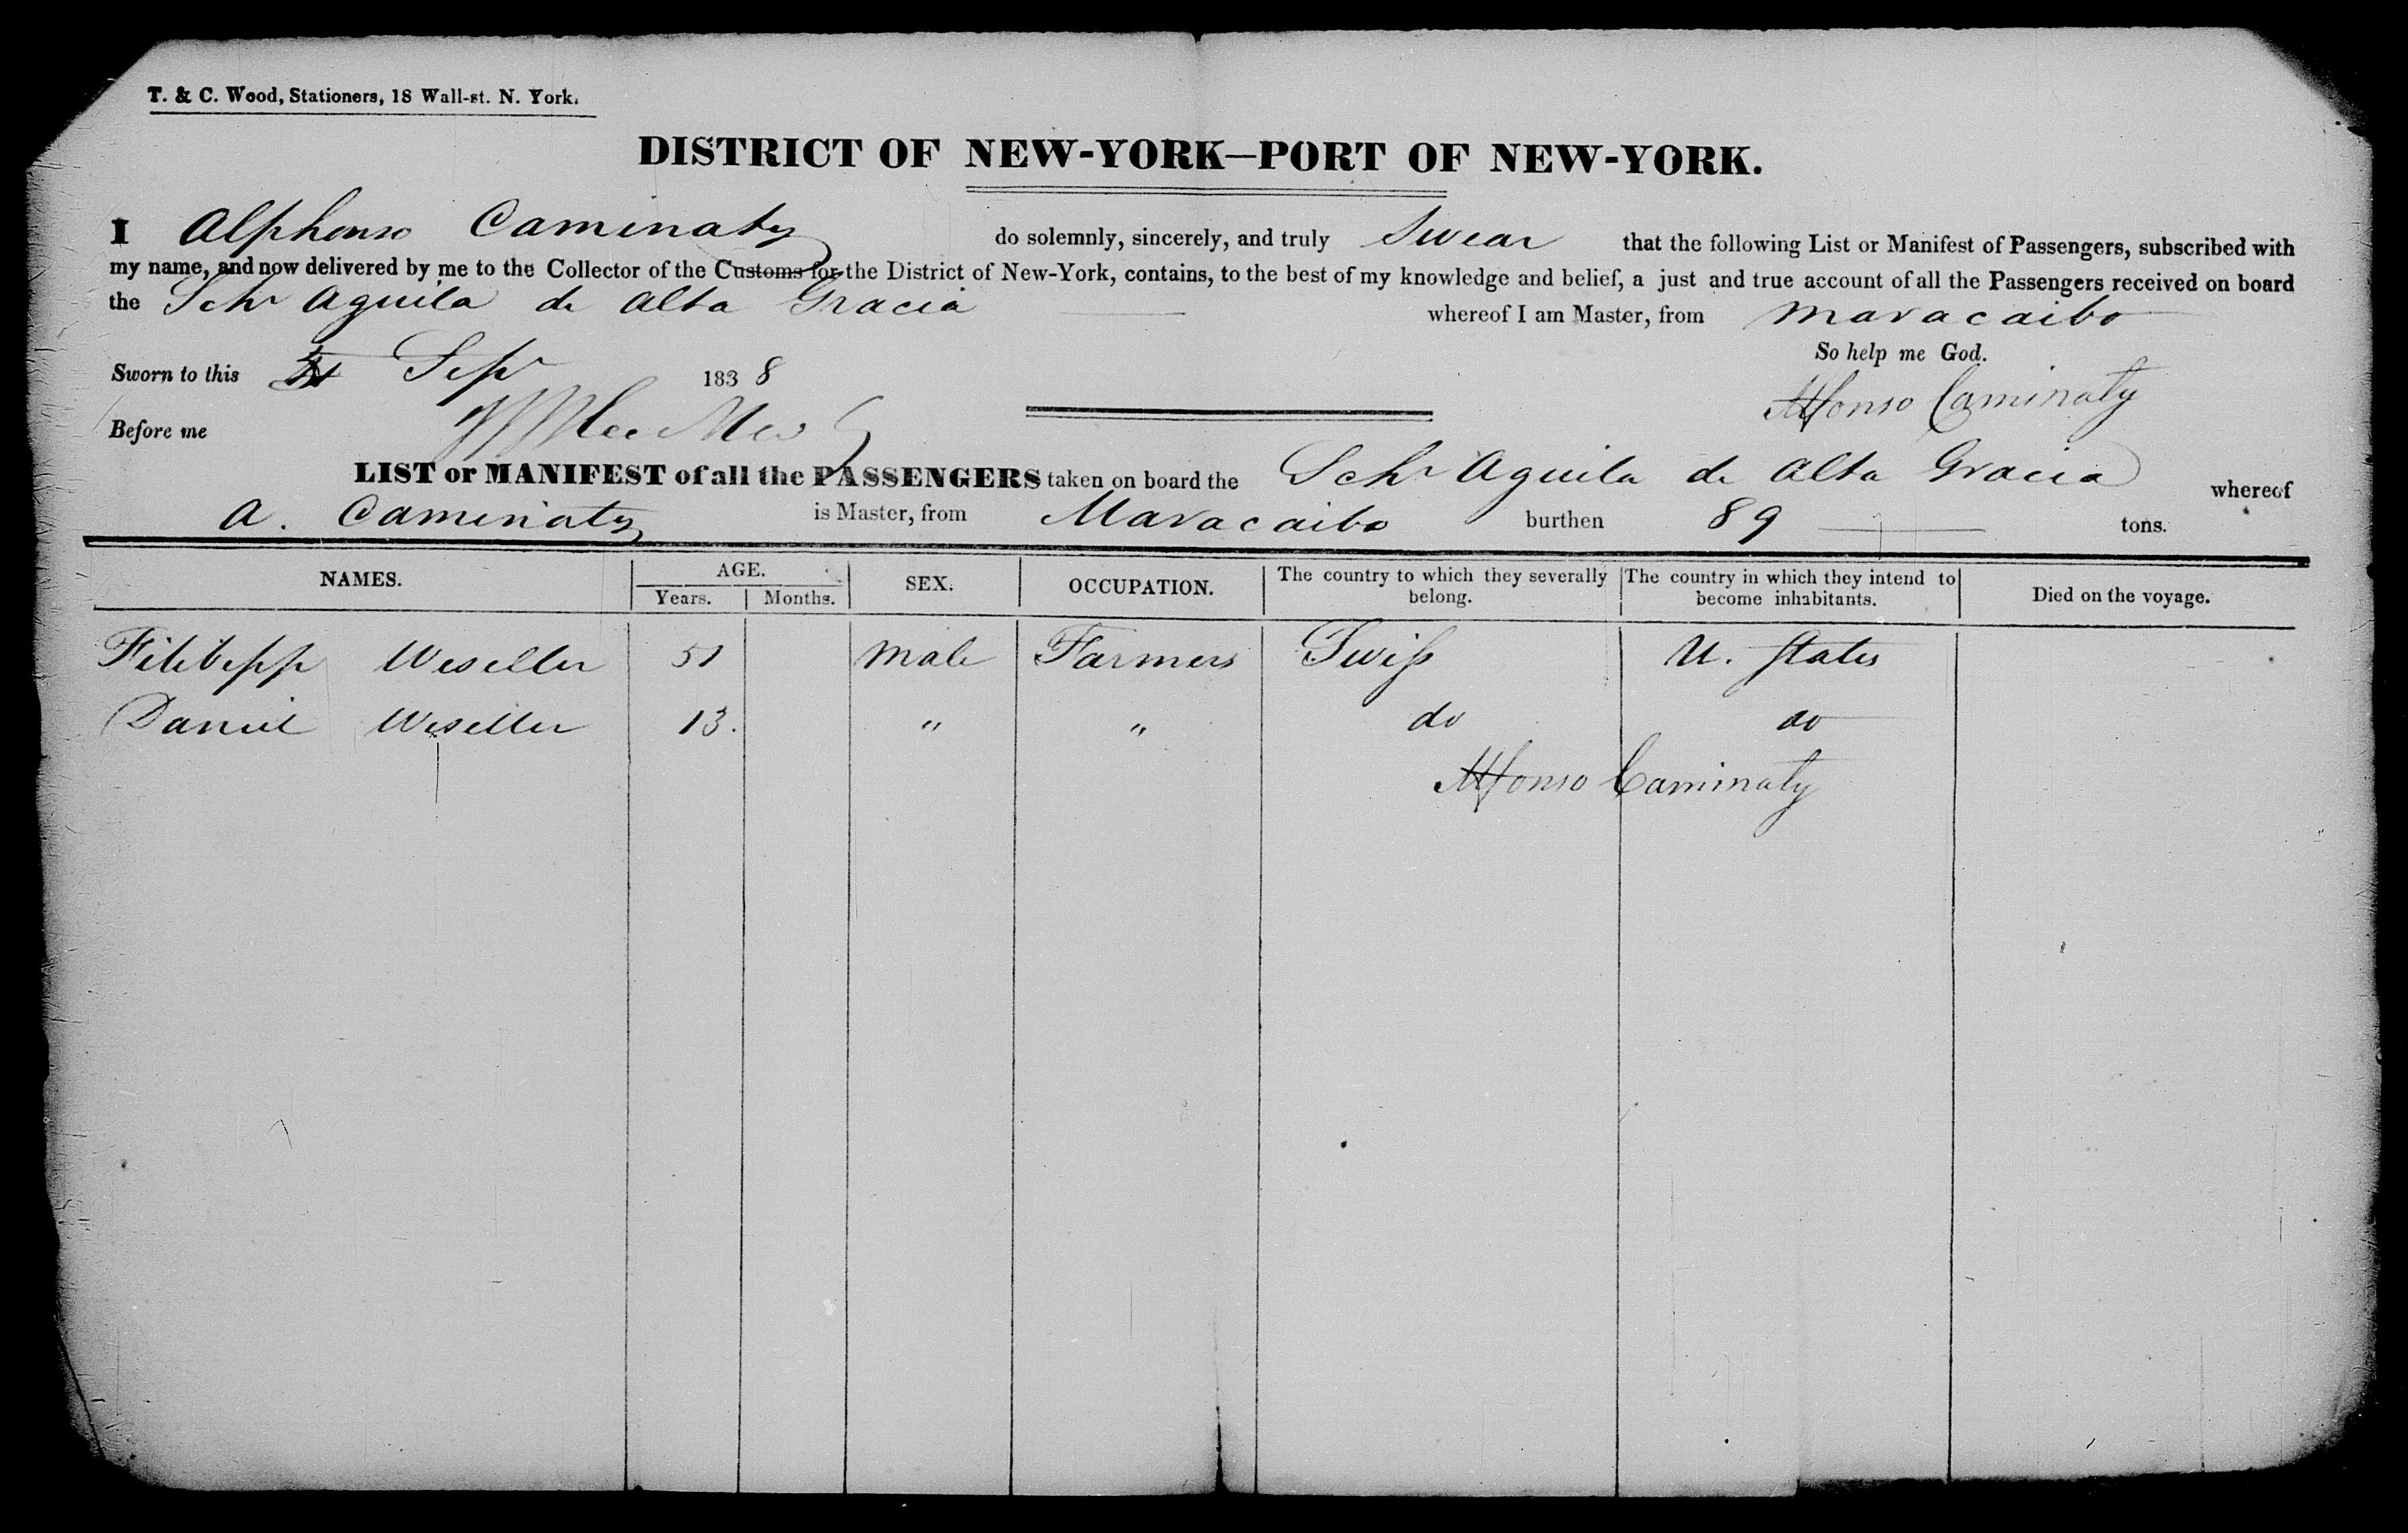 T. & C. Wood, Stationers, 18 Wall-st. N. York.
DISTRICT OF NEW-YORK—PORT OF NEW-YORK.
I Alphonso Caminaty do solemnly, sincerely, and truly Swear that the following List or Manifest of Passengers, subscribed with
my name, and now delivered by me to the Collector of the Customs for the District of New-York, contains, to the best of my knowledge and belief, a just and true account of all the Passengers received on board
the Schr Aguila de Alta Gracia whereof I am Master, from Maracaibo
So help me God.
Sworn to this Sepr 1838
Alfonso Caminaty
Before me
LIST or MANIFEST of all the PASSENGERS taken on board the Schr Aguila de Alta Gracia whereof
A. Caminaty is Master, from Maracaibo burthen 89 tons.
NAMES. AGE. Years. Months. SEX. OCCUPATION. The country to which they severally belong. The country in which they intend to become inhabitants. Died on the voyage.
Filibepp Weseller 51 Male Farmers Swiss U. States
Daniel Weseller 13. " " do do
Alfonso Caminaty